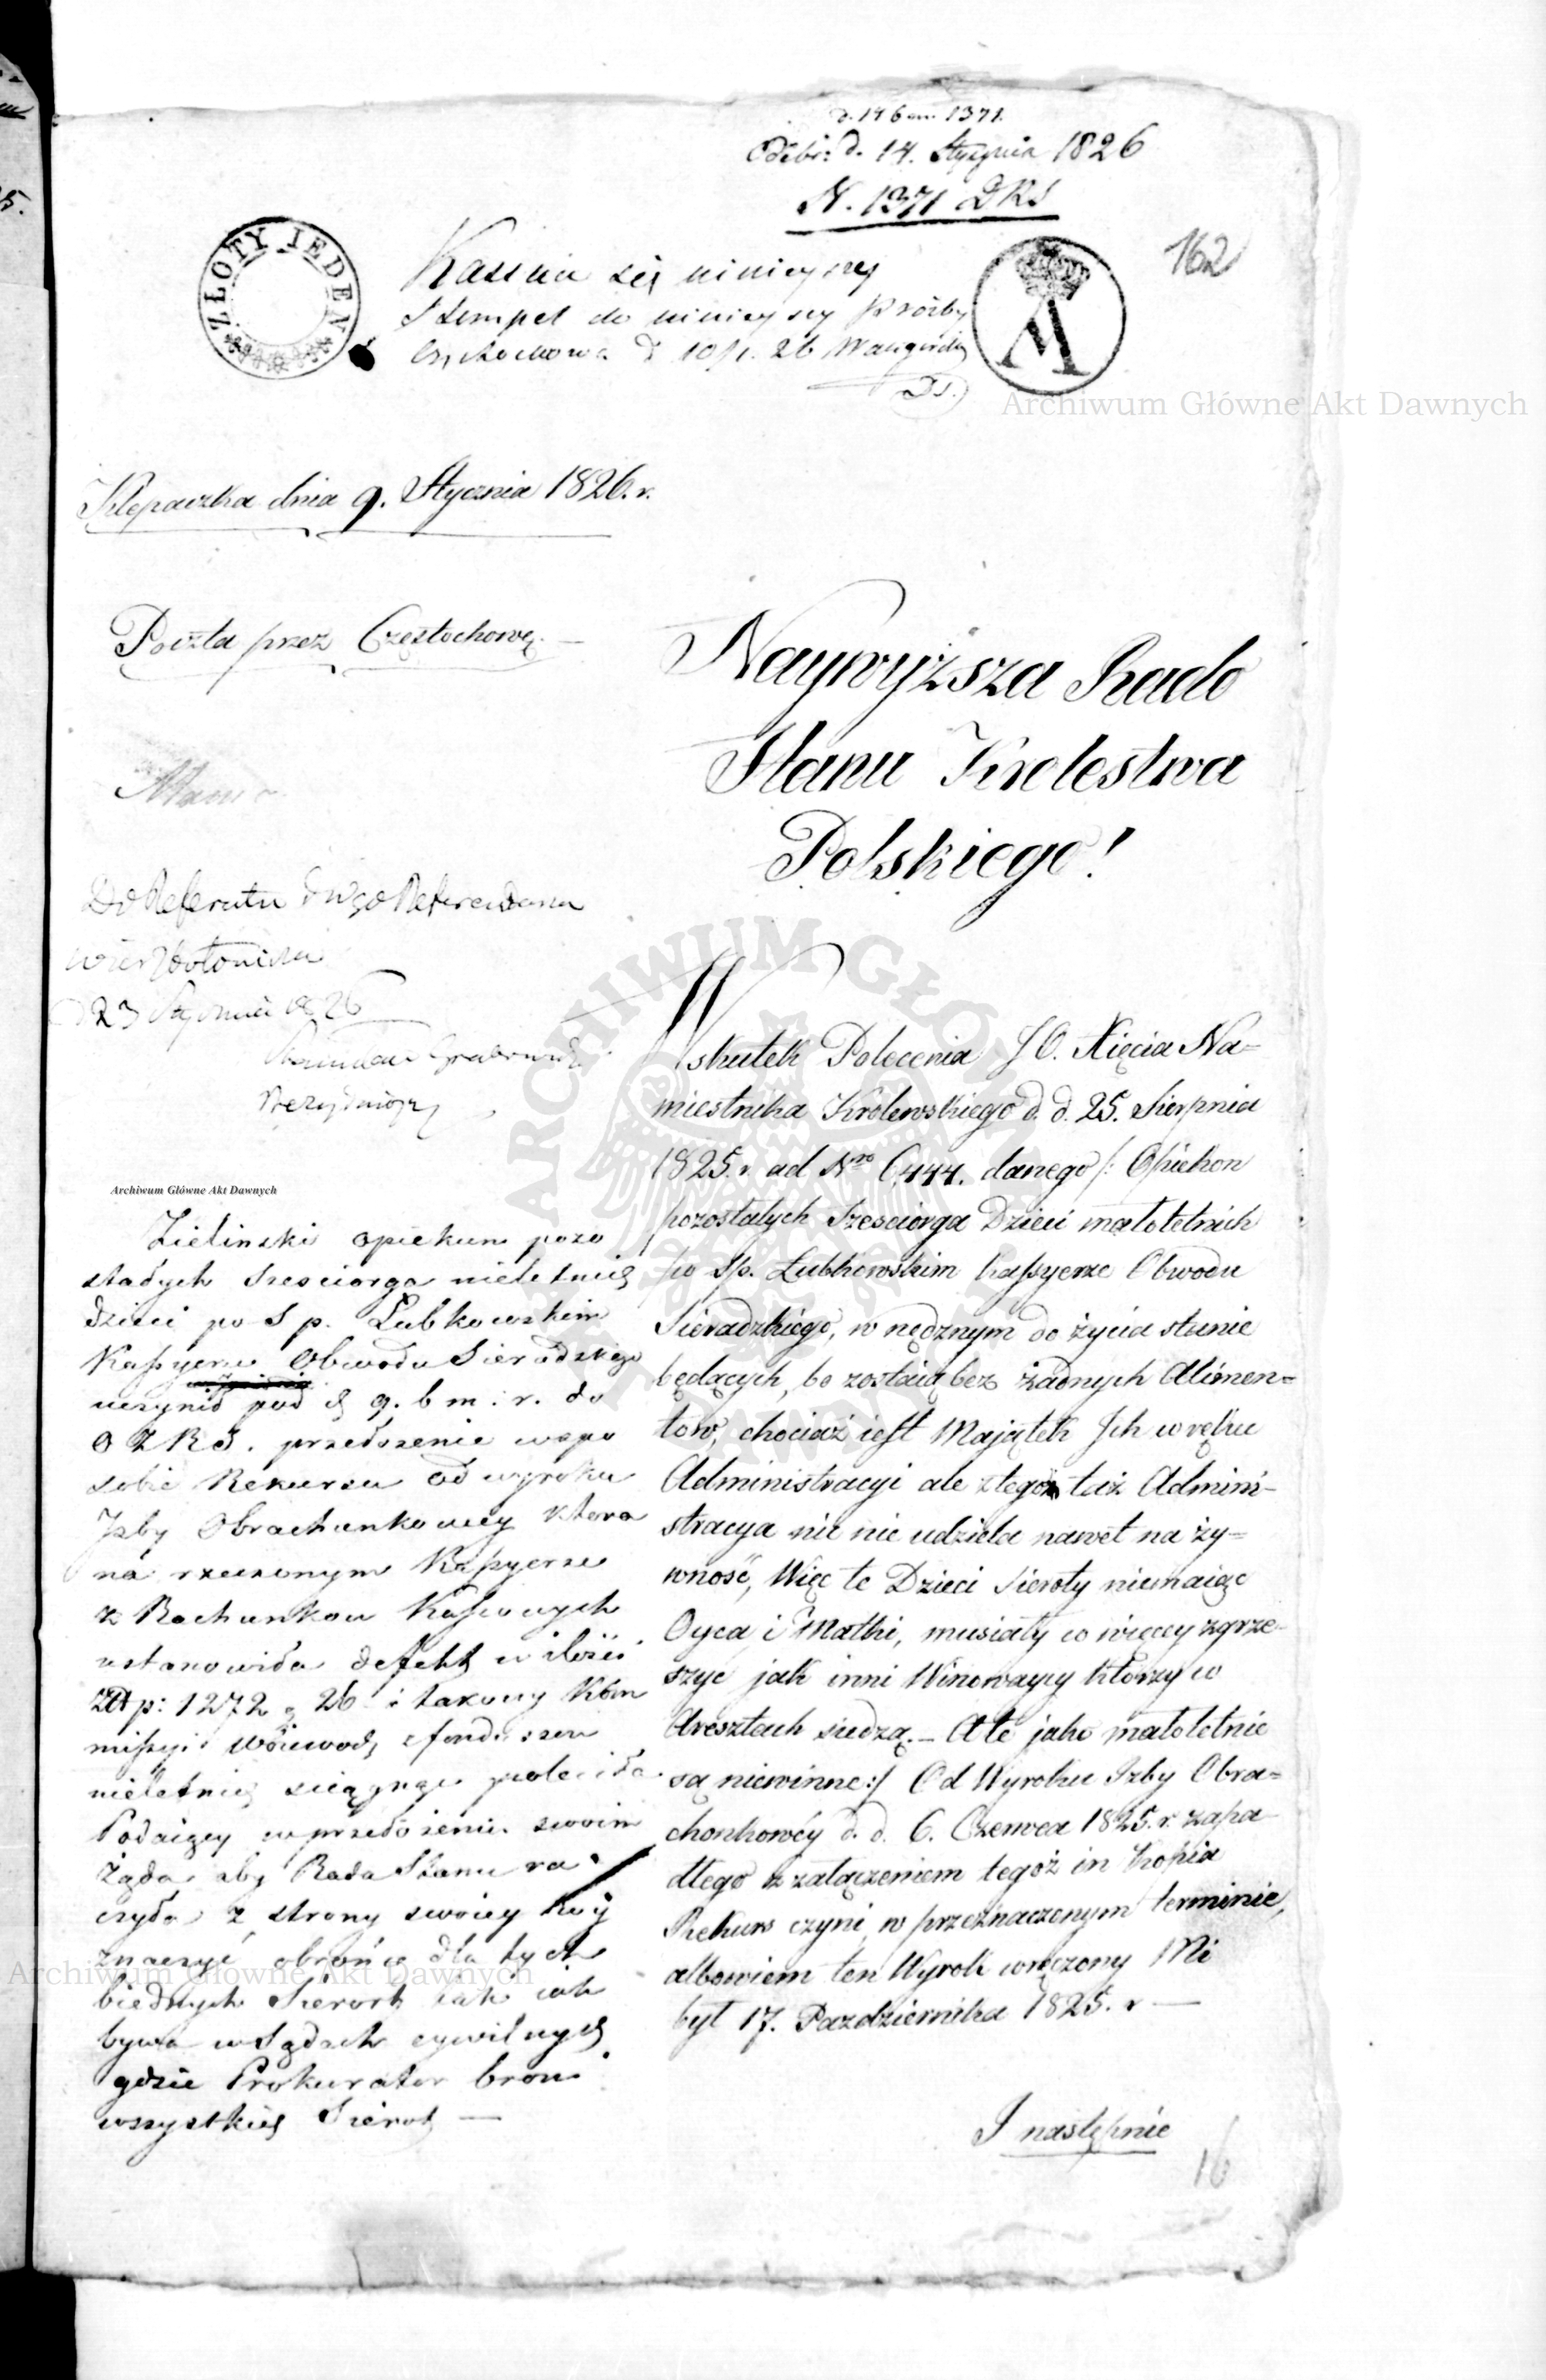 d. 14 b m. 1371.
Odebr: d. 14. Stycznia 1826
N. 1371 DKS
162
ZŁOTY JEDEN
Kassuie się ninieyszy
Stempel do ninieyszey Prozby
Częstochowa d 10/1. 26
DS.
Archiwum Główne Akt Dawnych
Klepaczka dnia 9. Stycznia 1826. r.
Poczta przez Częstochowę. —
Naywyższa Rado
Stanu Krolestwa
Polskiego!
Do Referatu Referendarza
d 23 Stycznia 1826
Archiwum Główne Akt Dawnych
Zielinski opiekun pozo
stałych sześciorga nieletnich
dzieci po S p. Łubkowskim
Kassyerze Obwodu Sieradzkiego
uczynił pod d 9. b m: r. do
O Z R S. przełożenie wspo
sobie Rekursu od wyroku
Izby Obrachunkowey ktora
na rzeczonym Kassyerze
z Rachunkow Kassowych
ustanowiła defekt w ilości
Złt p: 1272 g 26 i takowy Kom
missyi Woiewodz z funduszu
nieletnich sciągnąc poleciła
Podaiący w przełożeniu swoim
żąda aby Rada Stanu ra
czyła z strony swoiey wy
znaczyć obrońcę dla tych
biednych Sierot iak iak
bywa w Sądach cywilnych
gdzie Prokurator broni
wszystkich Sierot —
Wskutek Polecenia J O. Xięcia Na=
miestnika Krolewskiego d. d. 25. Sierpnia
1825. r. ad Nro 6444. danego /: Opiekon
pozostałych Sześciorga Dzieci małoletnich
po Sp. Łubkowskim Kassyerze Obwodu
Sieradzkiego, w nędznym do życia stanie
będących, bo zostaią bez żadnych Alimen=
tow, chociaż iest Maiątek Ich w ręku
Administracyi ale z tegoż taż Admini=
stracya nic nie udziela nawet na ży=
wność, Więc te Dzieci Sieroty niemaiąc
Oyca i Matki, musiały co więcey zgrze=
szyć jak inni Winowaycy którzy w
Aresztach siedzą. — Ale jako małoletnie
są niewinne :/ Od Wyroku Izby Obra=
chonkowéy d. d. 6. Czerwca 1825. r. zapa=
dłego z załączeniem tegoż in Kopia
Rekurs czyni, w przeznaczonym terminie,
albowiem ten Wyrok wręczony Mi
był 17. Pazdziernika 1825. r —
Archiwum Główne Akt Dawnych
I następnie
16